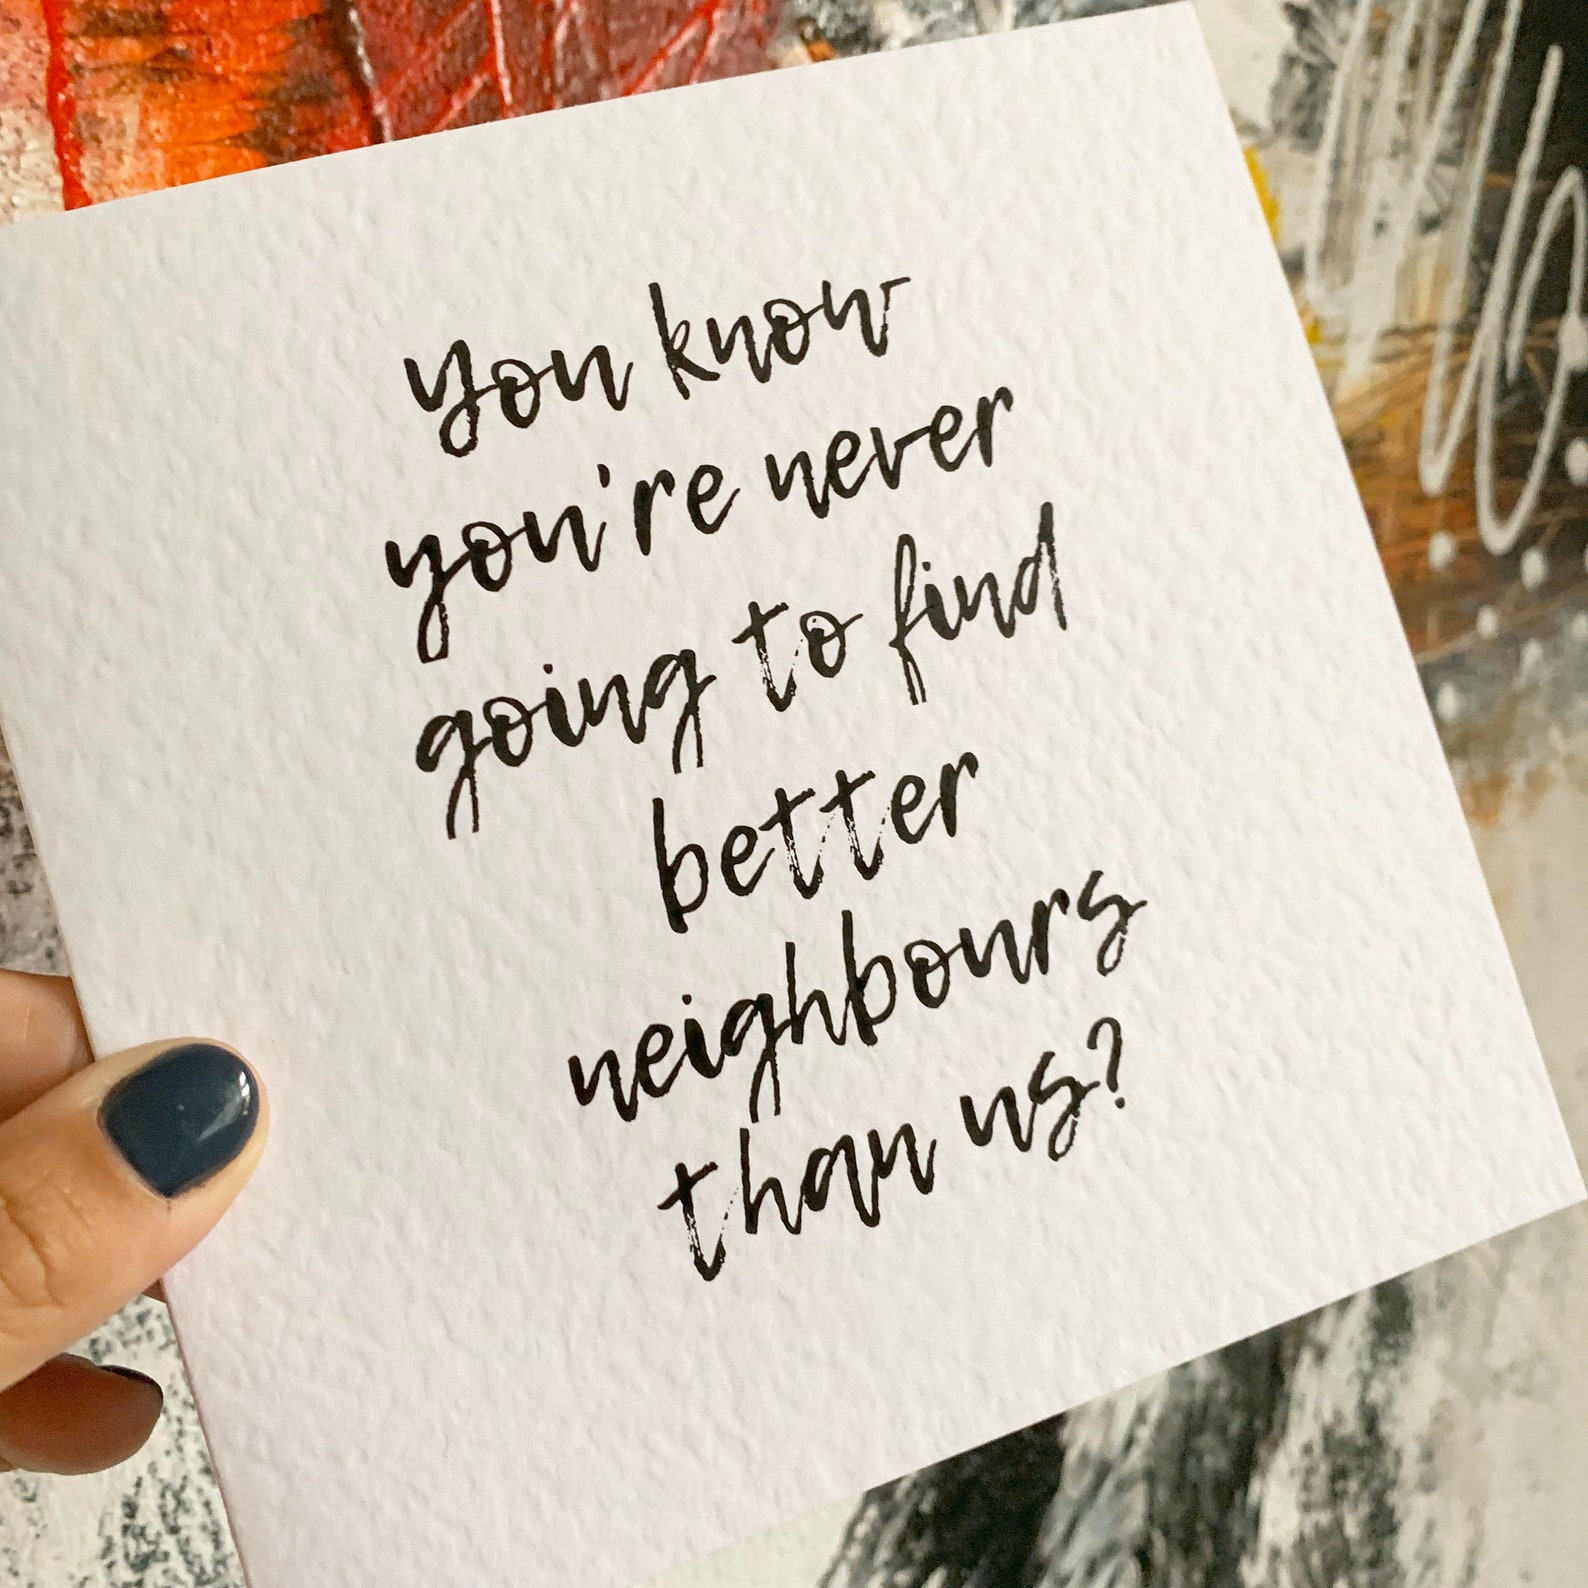 you know
you're never
going to find
better
neighbours
than us?